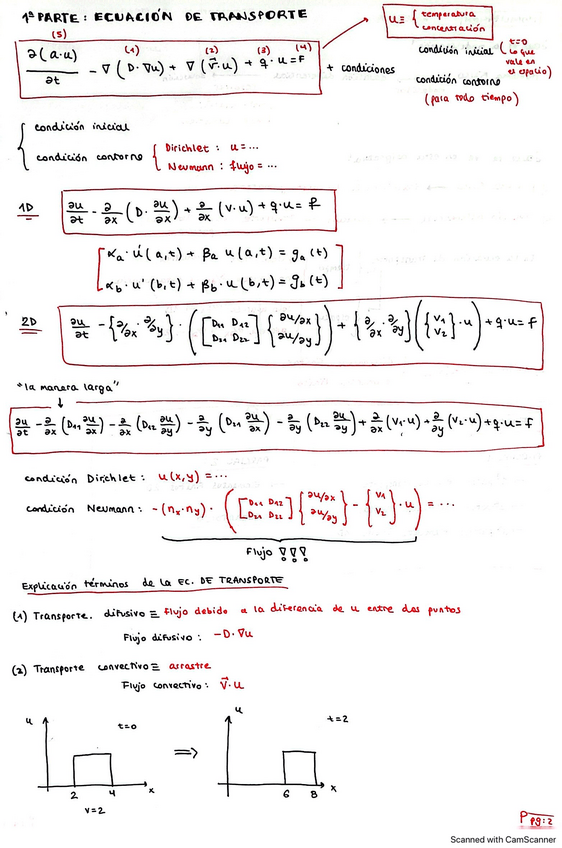 1ª PARTE: ECUACIÓN DE TRANSPORTE
u ≡ { temperatura
concentración
(5) (1) (2) (3) (4)
∂(a·u)/∂t - ∇(D·∇u) + ∇(v⃗·u) + q·u = F + condiciones
condición inicial (t=0 lo que vale en el espacio)
condición contorno
(para todo tiempo)
{ condición inicial
condición contorno { Dirichlet: u=...
Neumann: flujo=...
1D
∂u/∂t - ∂/∂x (D·∂u/∂x) + ∂/∂x (v·u) + q·u = f
[ αa·u'(a,t) + βa u(a,t) = ga(t)
αb·u'(b,t) + βb·u(b,t) = gb(t) ]
2D
∂u/∂t - {∂/∂x · ∂/∂y} · ([D11 D12 D21 D22] {∂u/∂x ∂u/∂y}) + {∂/∂x · ∂/∂y} ({v1 v2}·u) + q·u = f
"la manera larga"
∂u/∂t - ∂/∂x (D11 ∂u/∂x) - ∂/∂x (D12 ∂u/∂y) - ∂/∂y (D21 ∂u/∂x) - ∂/∂y (D22 ∂u/∂y) + ∂/∂x (v1·u) + ∂/∂y (v2·u) + q·u = f
condición Dirichlet: u(x,y) = ...
condición Neumann: -(nx·ny)· ([D11 D12 D21 D22] {∂u/∂x ∂u/∂y} - {v1 v2}·u) = ...
Flujo !!!
Explicación términos de la EC. DE TRANSPORTE
(1) Transporte. difusivo ≡ flujo debido a la diferencia de u entre dos puntos
Flujo difusivo: -D·∇u
(2) Transporte convectivo ≡ arrastre
Flujo convectivo: v⃗·u
u t=0 ⇒ u t=2
2 4 x 6 8 x
v=2
Ppg:2
Scanned with CamScanner